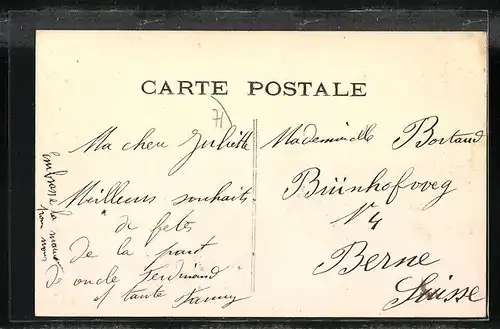 CARTE POSTALE
71
Ma cher Juliette
Meilleurs souhaits
de fetes
De la part
de oncle Ferdinand
et tante Fanny
Embrasse la
pour nous
Mademoiselle Bortaud
Brünhofweg
N 4
Berne
Suisse